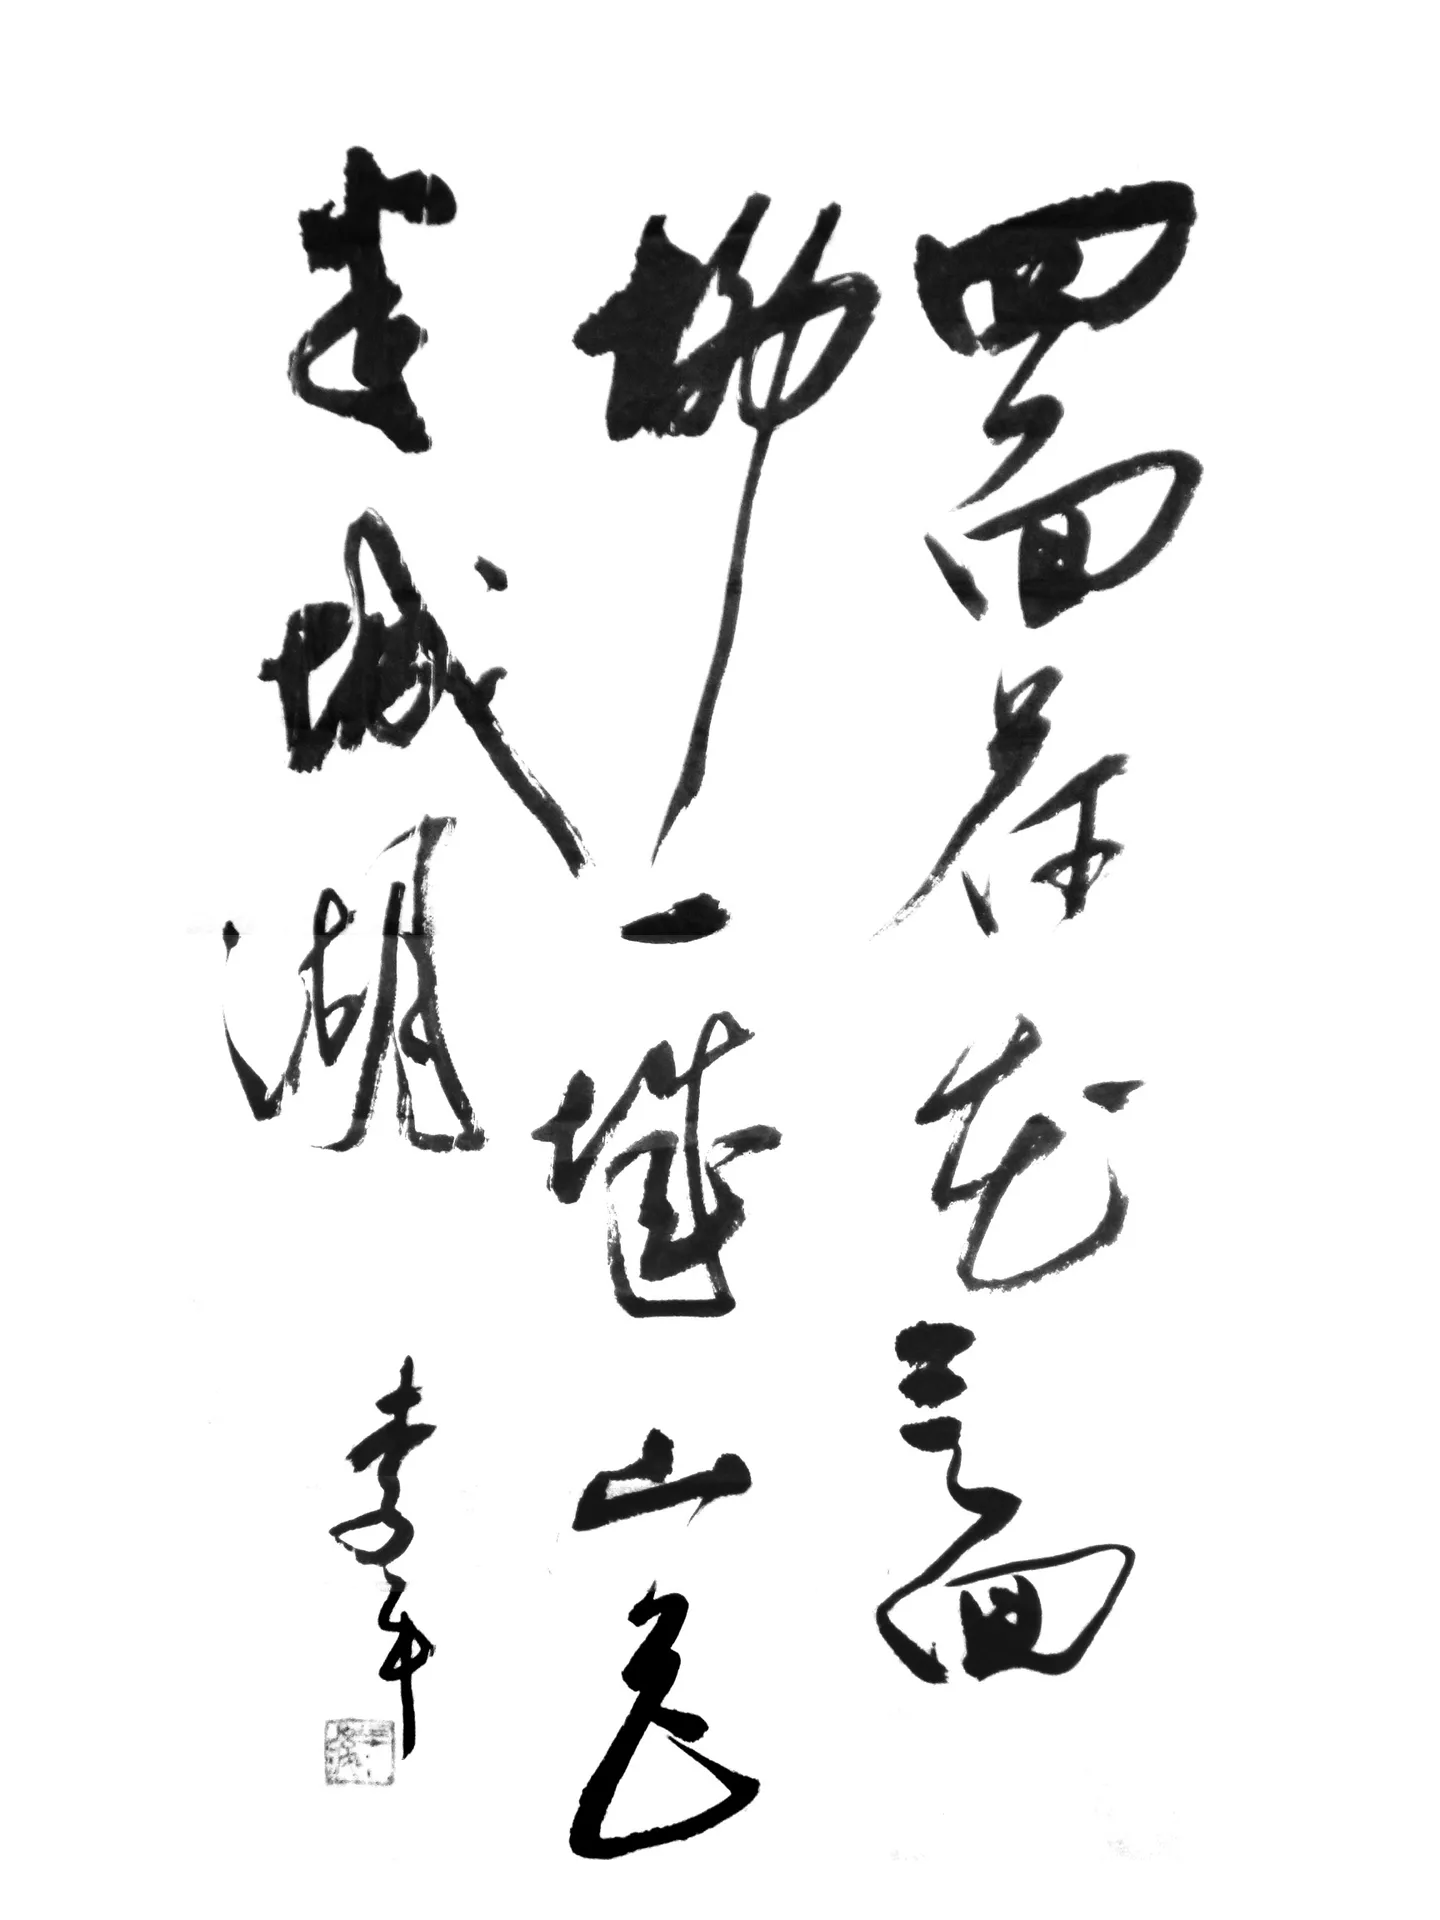 四面荷花三面
柳一城山色
半城湖
李